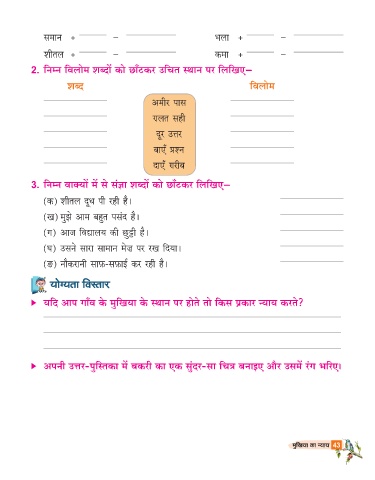 समान + ______ – ______ भला + ______ – ______
शीतल + ______ – ______ कमा + ______ – ______
2. निम्न विलोम शब्दों को छाँटकर उचित स्थान पर लिखिए–
शब्द विलोम
अमीर पास
ग़लत सही
दूर उत्तर
बाएँ प्रश्न
दाएँ गरीब
3. निम्न वाक्यों में से संज्ञा शब्दों को छाँटकर लिखिए–
(क) शीतल दूध पी रही है।
(ख) मुझे आम बहुत पसंद है।
(ग) आज विद्यालय की छुट्टी है।
(घ) उसने सारा सामान मेज़ पर रख दिया।
(ङ) नौकरानी साफ़-सफ़ाई कर रही है।
योग्यता विस्तार
यदि आप गाँव के मुखिया के स्थान पर होते तो किस प्रकार न्याय करते?
अपनी उत्तर-पुस्तिका में बकरी का एक सुंदर-सा चित्र बनाइए और उसमें रंग भरिए।
मुखिया का न्याय 43